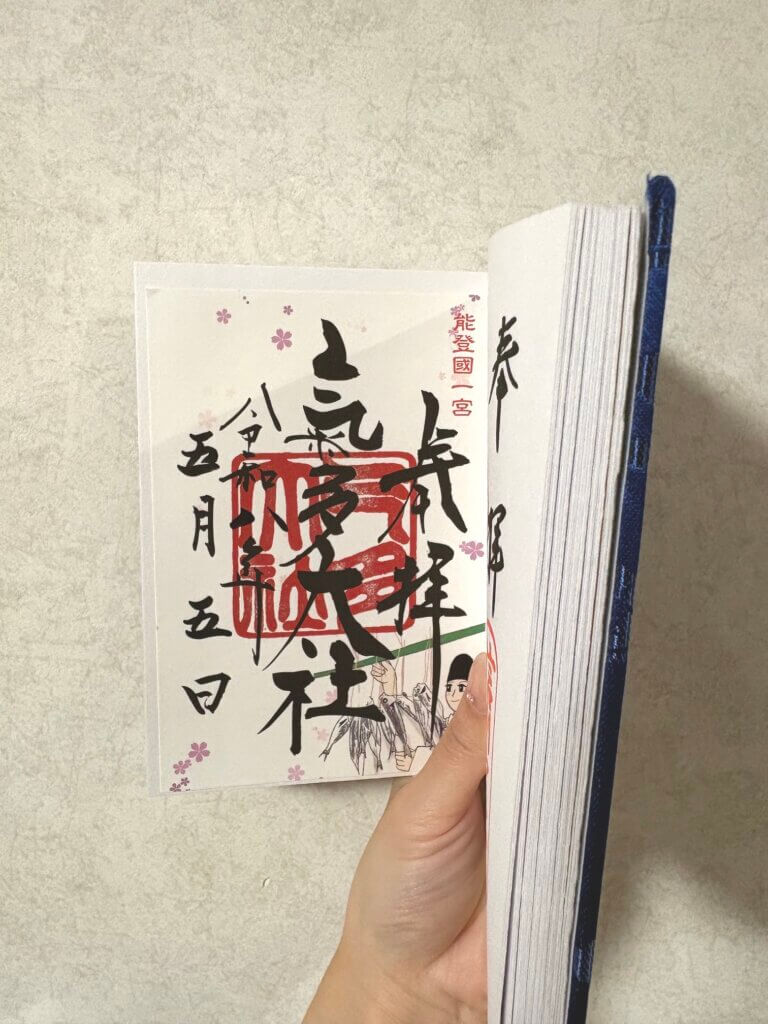 奉拝
能登國一宮
奉拝
氣多大社
令和八年
五月五日